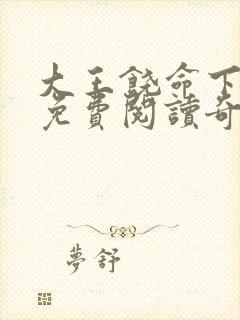 大王饶命下
免費閱讀奇
夢舒